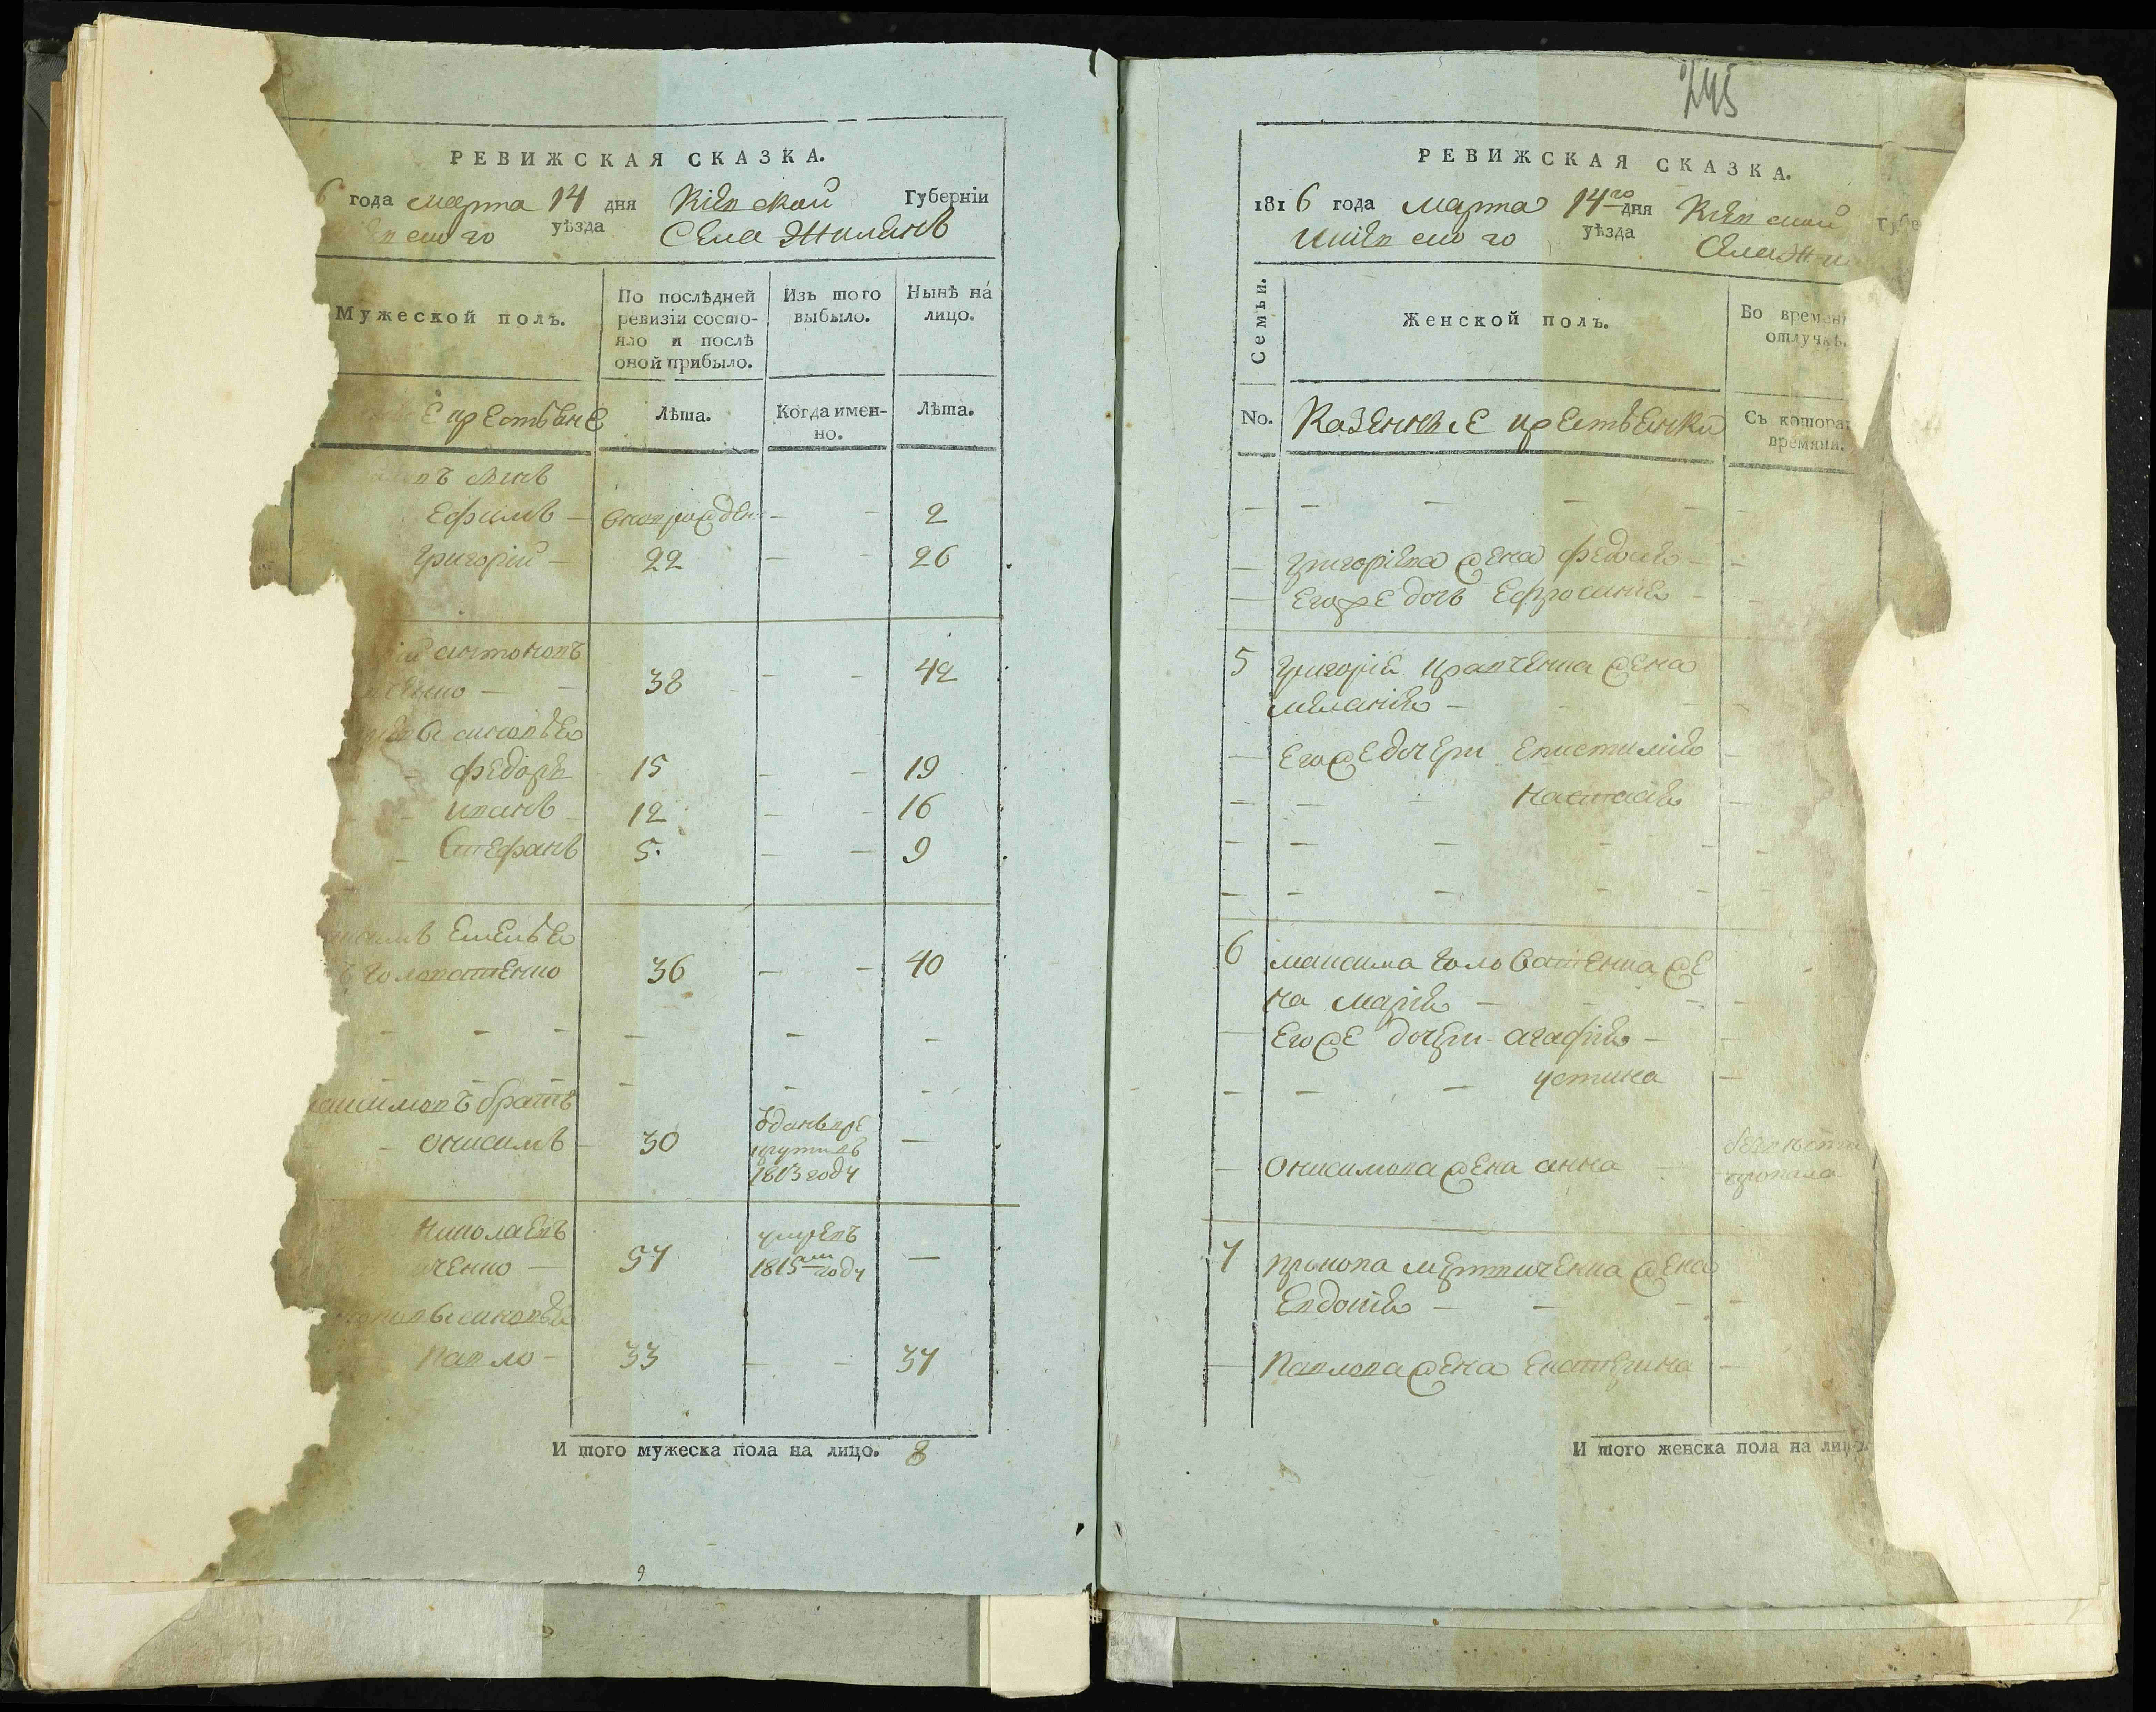 РЕВИЖСКАЯ СКАЗКА.
6 года марта 14 дня Кіевской Губерніи
уѣзда Села Жилянъ
Мужеской полъ.
По послѣдней ревизіи состо-
яло и послѣ
оной прибыло.
Изъ того
выбыло.
Нынѣ на
лицо.
крестьяне
Лѣта.
Когда имен-
но.
Лѣта.
въ сынъ
Ефимъ — новорожден — — 2
Григорій — 22 — — 26
антоновъ
ченко — — 38 — — 42
сыновья
— федоръ 15 — — 19
— иванъ 12 — — 16
— Стефанъ 5 — — 9
Емелья
Головатенко 36 — — 40
— — — — — —
— — — — — —
братъ
— онисимъ — 30 зданъ вре
крутъ въ
1813 году —
Николаевъ
ченко — 57 умревъ
1815м году —
сыновья
Павло — 33 — — 37
И того мужеска пола на лицо. 8
9
245
РЕВИЖСКАЯ СКАЗКА.
1816 года марта 14го дня Кіевской Губе
Кіевского уѣзда Села Жи
Семьи.
Женской полъ.
Во времен
отлучкѣ.
No.
Казенные крестьянки
Съ котора
времяни.
— — — — —
— Григоріева жена федося — —
— Егоже дочь Ефросинія — —
5 Григорія кравченка жена
меланія — — — —
— Егоже дочери Епистимія —
— — — настасія —
— — — — — —
— — — — — —
6 максима Головатенка же
на марія — — — —
— Егоже дочери агафія — —
— — — устина —
— онисимова жена анна —
7 прокопа мертвиченка жена
Евдокія — — — —
— Павлова жена Екатерина —
И того женска пола на лицо